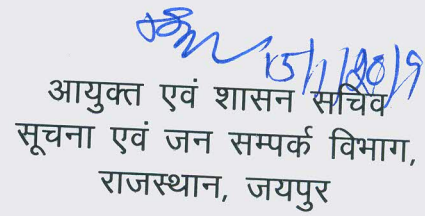 15/1/2019
आयुक्त एवं शासन सचिव
सूचना एवं जन सम्पर्क विभाग,
राजस्थान, जयपुर